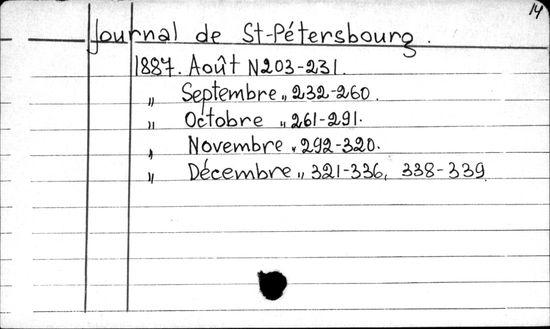 14
Journal de St-Pétersbourg.
1887. Août N203-231.
„ Septembre „ 232-260.
„ Octobre „ 261-291.
„ Novembre „ 292-320.
„ Décembre „ 321-336, 338-339